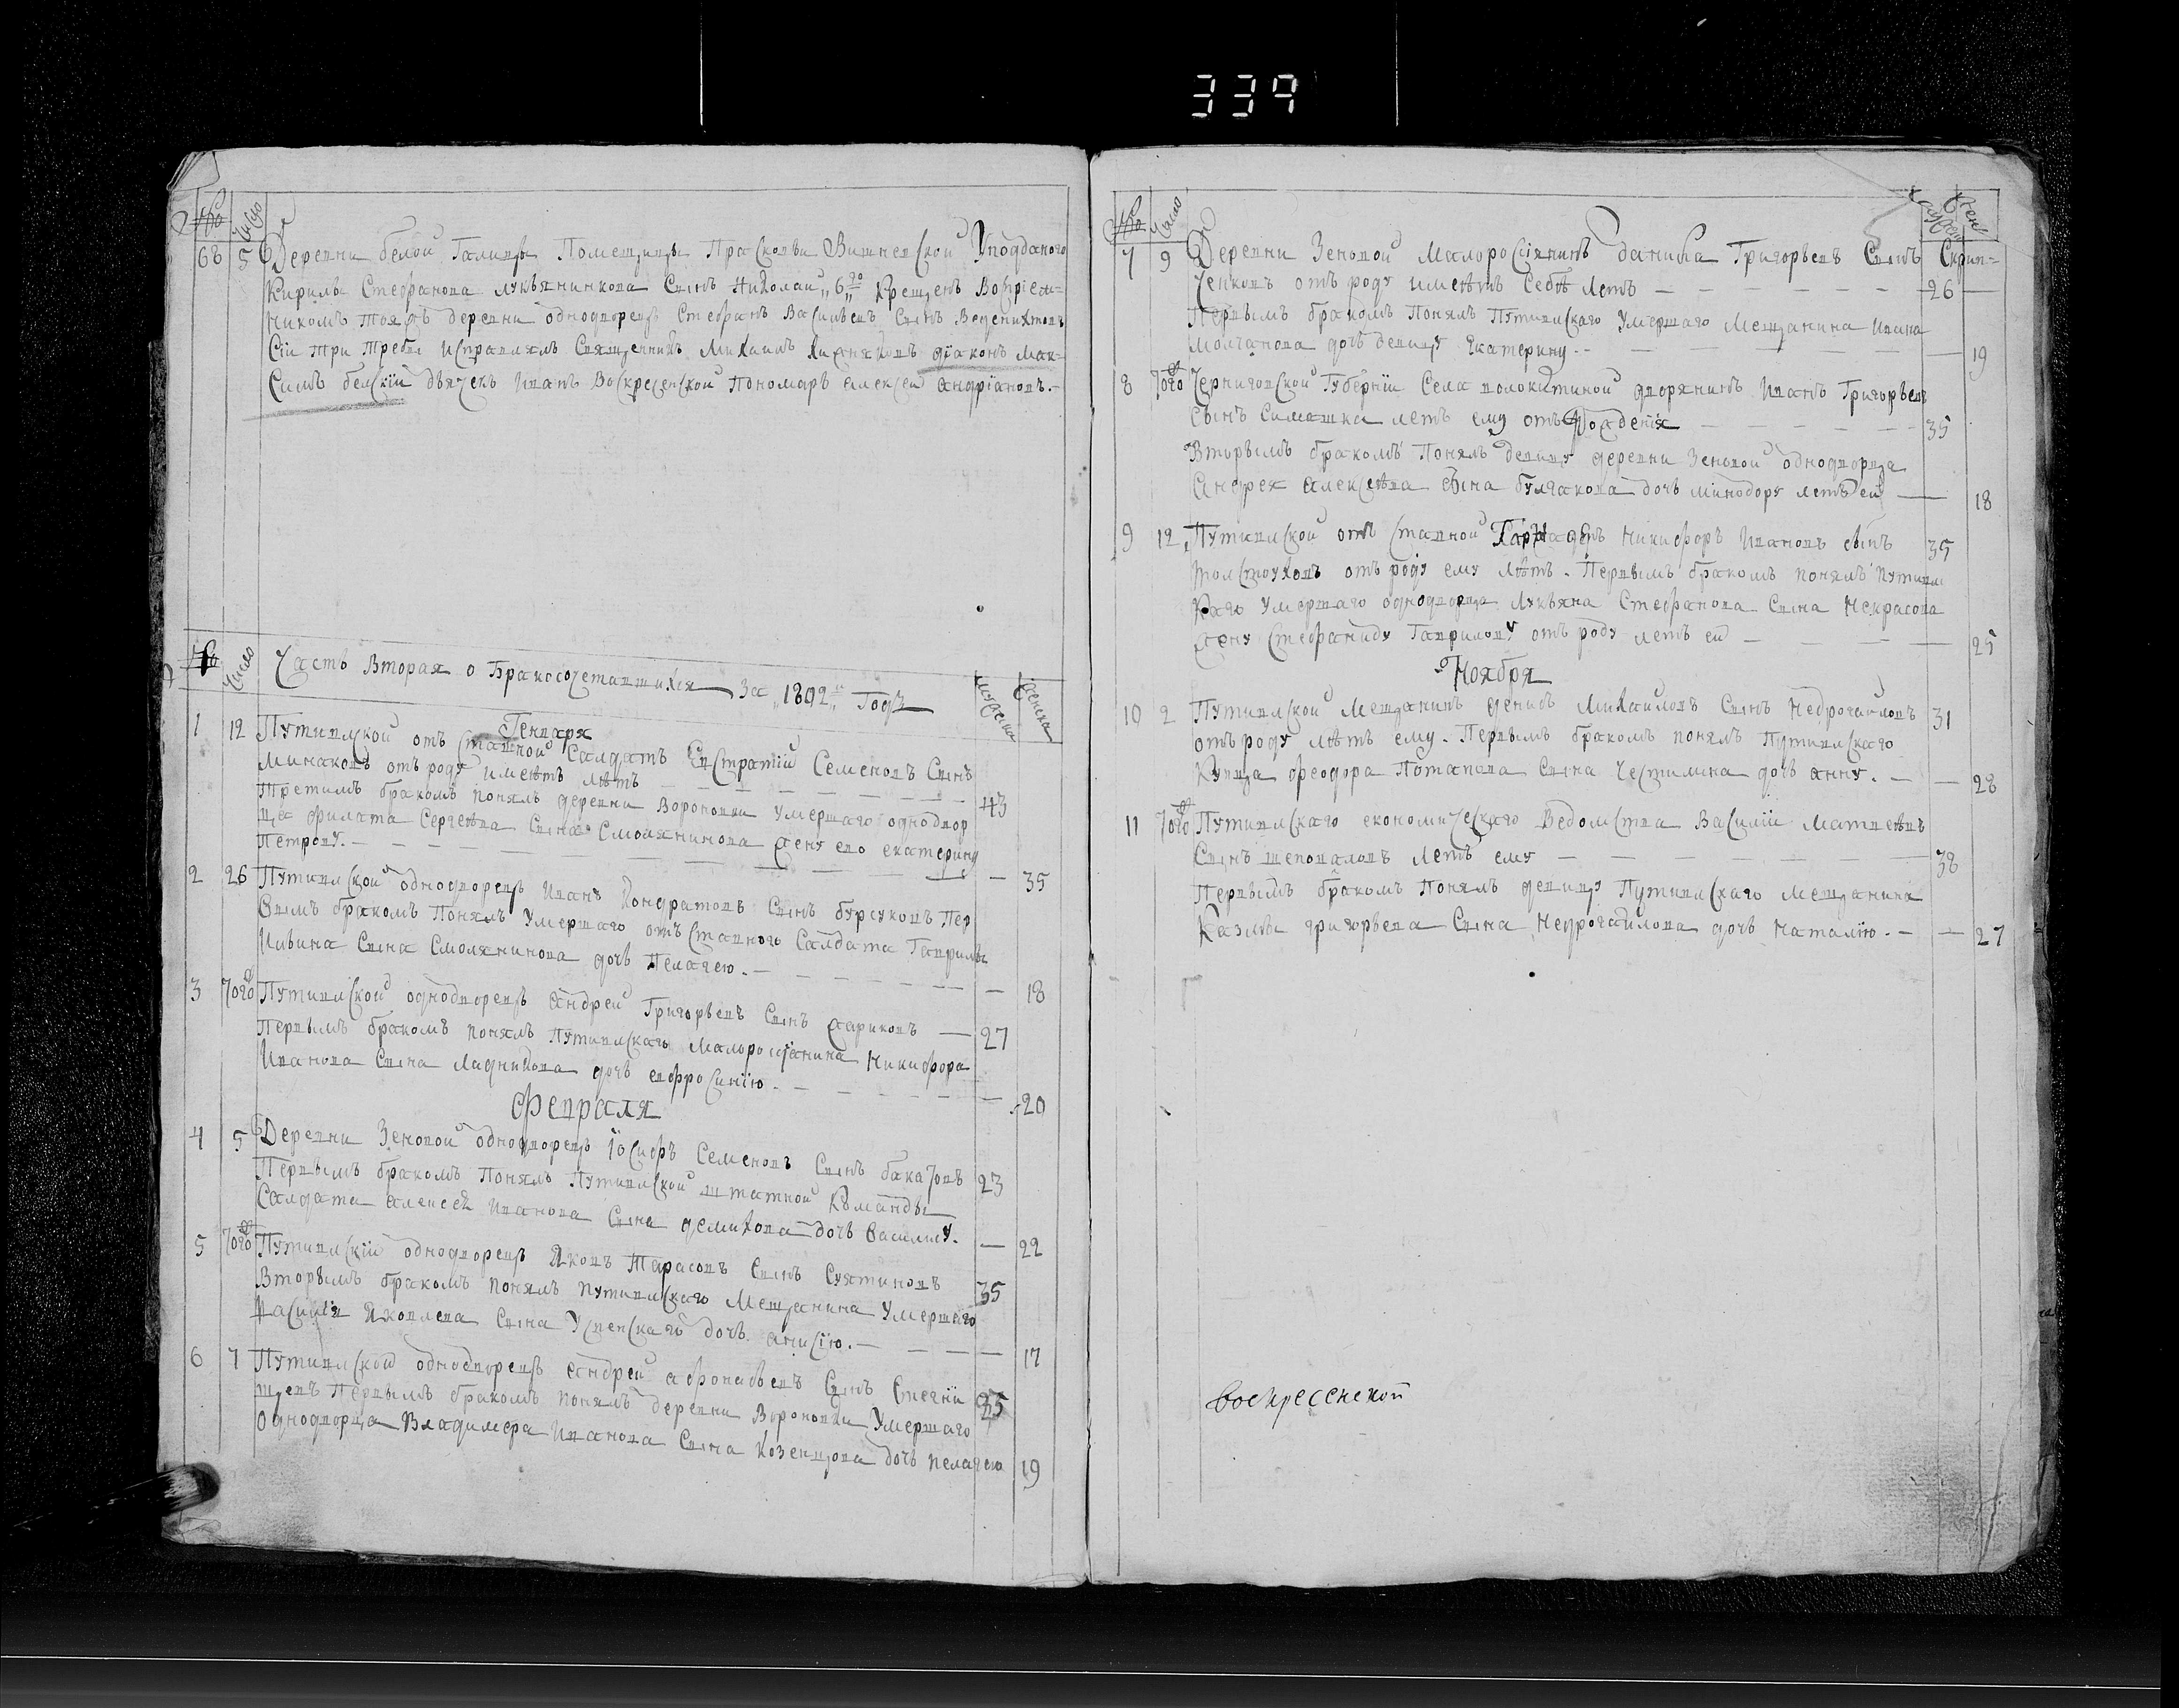 339
№ Число
68 5 Деревни белой Галицы Помещицы Прасковьи Вишневской Уподданого
Кирилы Стефанова лукьянчикова Сынъ Николай „6го„ Крещенъ Воспріем-
никомъ тоя жъ деревни однодворецъ Стефанъ Васильевъ Сынъ
Сіи три требы исправлялъ Священникъ Михаилъ діаконъ Мак-
симъ бельскій дьячекъ Иванъ Воскресенской Пономарь алексей андріановъ.
№ Число Часть Вторая о Бракосочетавшихся За „1802й„ Годъ мужеска женска
Генваря
1 12 Путивлской отъ ставной Салдатъ Евстратій Семеновъ Сынъ
Минаковъ отъ роду имеетъ лѣтъ 43
Третимъ бракомъ понялъ деревни Вороновки умершаго однодвор
ца филата Сергеева Сына Смолянинова жену ево екатерину
Петрову. 35
2 26 Путивлской однодворецъ Иванъ Кондратовъ Сынъ бурсуковъ Пер
вымъ бракомъ Понялъ умершаго отъ ставного Салдата Гаврилы
Ильина Сына Смолянинова дочь Пелагею. 18
3 7ого Путивлской однодворецъ андрей Григорьевъ Сынъ жариковъ 27
Первымъ бракомъ понялъ Путивлскаго Малоросіянина Никифора
Иванова Сына Ладникова дочь евфросинію. 20
Февраля
4 5 Деревни Зеновой однодворецъ Іосифъ Семеновъ Сынъ 23
Первымъ бракомъ Понялъ Путивлской штатной Команды
Салдата алексея Иванова Сына демихова дочь Василису. 22
5 7ого Путивлскій однодворецъ Яковъ Тарасовъ Сынъ Суятиновъ 35
Вторымъ бракомъ понялъ Путивлскаго Мещанина умершаго
Василія Яковлева Сына Успенскаго дочь анисію. 17
6 7 Путивлской однодворецъ андрей афонасьевъ Сынъ Снегти 25
щевъ Первымъ бракомъ понялъ деревни Вороновки умершаго
Однодворца Владимера Иванова Сына Козенцова дочь пелагею 19
№ Число мужеск женск
7 9 Деревни Зеновой малоросіянинъ данила Григорьевъ Сынъ Скрип=
ченковъ отъ роду имеетъ Себѣ летъ 26
Первымъ бракомъ Понялъ Путивлскаго умершаго мещанина Ивана
Молчанова дочь девицу екатерину. 19
8 7ого Черниговской Губерніи Села волокитиной дворянинъ Иванъ Григорьевъ
сынъ Симашка летъ ему отъ рожденія 35
Вторымъ бракомъ Понялъ девицу деревни Зеновой однодворца
андрея алексеева сына булгакова дочь минодору летъ ей 18
9 12 Путивлской отъ ставной Никифоръ Ивановъ сынъ 35
толстоуховъ отъ роду ему лѣтъ. Первымъ бракомъ понялъ Путивл
каго умершаго однодворца Лукьяна Стефанова Сына Некрасова
жену Стефаниду Гаврилову отъ роду летъ ей 25
Ноября
10 2 Путивлской мещанинъ денисъ Михаиловъ Сынъ Недрогаиловъ 31
отъ роду лѣтъ ему. Первымъ бракомъ понялъ Путивлскаго
Купца феодора Потапова Сына Честилина дочь анну. 28
11 7ого Путивлскаго економическаго Ведомства Василій Матвеевъ
Сынъ шеповаловъ летъ ему 38
Первымъ бракомъ Понялъ девицу Путивлскаго мещанина
Казмы григорьева Сына Недрогаилова дочь наталію. 27
воскресенской